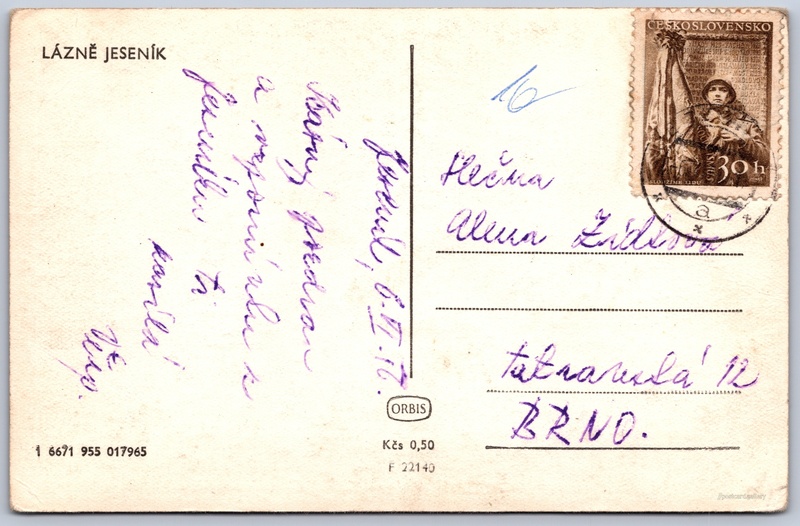 LÁZNĚ JESENÍK
Jeseník, 6.VI.
Krásný pozdrav
a vzpomínku z
Jeseníku ti
posílá
16
ČESKOSLOVENSKO
30 h
a
Slečna
Alena
12
BRNO.
ORBIS
Kčs 0,50
F 22140
1 6671 955 017965